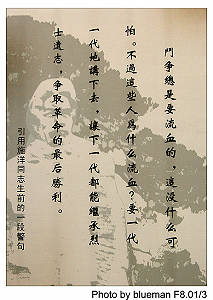 鬥争總是要流血的，這没什么可
怕。不過這些人爲什么流血？要一代
一代地講下去，接下一代都能繼承烈
士遺志，争取革命的最后勝利。
引用施洋同志生前的一段警句
Photo by blueman F8.01/3